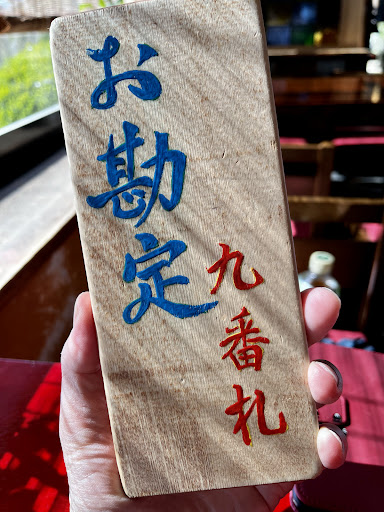 お勘定
九番札